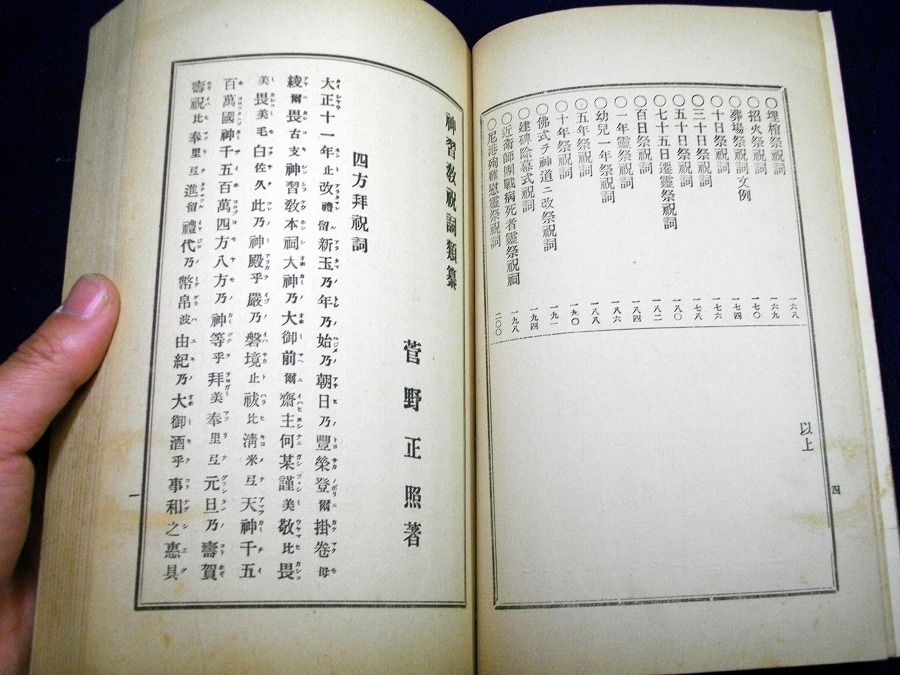 ○埋棺祭祝詞 一六八
○招火祭祝詞 一六九
○葬場祭祝詞文例 一七一
○十日祭祝詞 一七五
○三十日祭祝詞 一七六
○五十日祭祝詞 一七八
○七十五日遷靈祭祝詞 一八〇
○百日祭祝詞 一八二
○一年靈祭祝詞 一八四
○幼兒一年祭祝詞 一八六
○五年祭祝詞 一八八
○十年祭祝詞 一九〇
○佛式ヲ神道ニ改祭祝詞 一九一
○建碑除幕式祝詞 一九四
○近衛師團戰病死者靈祭祝詞 一九八
○尼港殉難慰靈祭祝詞 二〇〇
以上
四
神習教祝詞類纂
菅野正照著
四方拜祝詞
大正十一年止改禮留新玉乃年乃始乃朝日乃豐榮登爾掛卷毋
綾爾畏古支神習教本祠大神乃大御前爾齋主何某謹美敬比畏
美畏美毛白佐久此乃神殿乎嚴乃磐境止祓比淸米弖天神千五
百萬國神千五百萬四方八方乃神等乎拜美奉里弖元旦乃壽賀
壽祝比奉里弖進留禮代乃幣帛波由紀乃大御酒乎事和之惠具
一